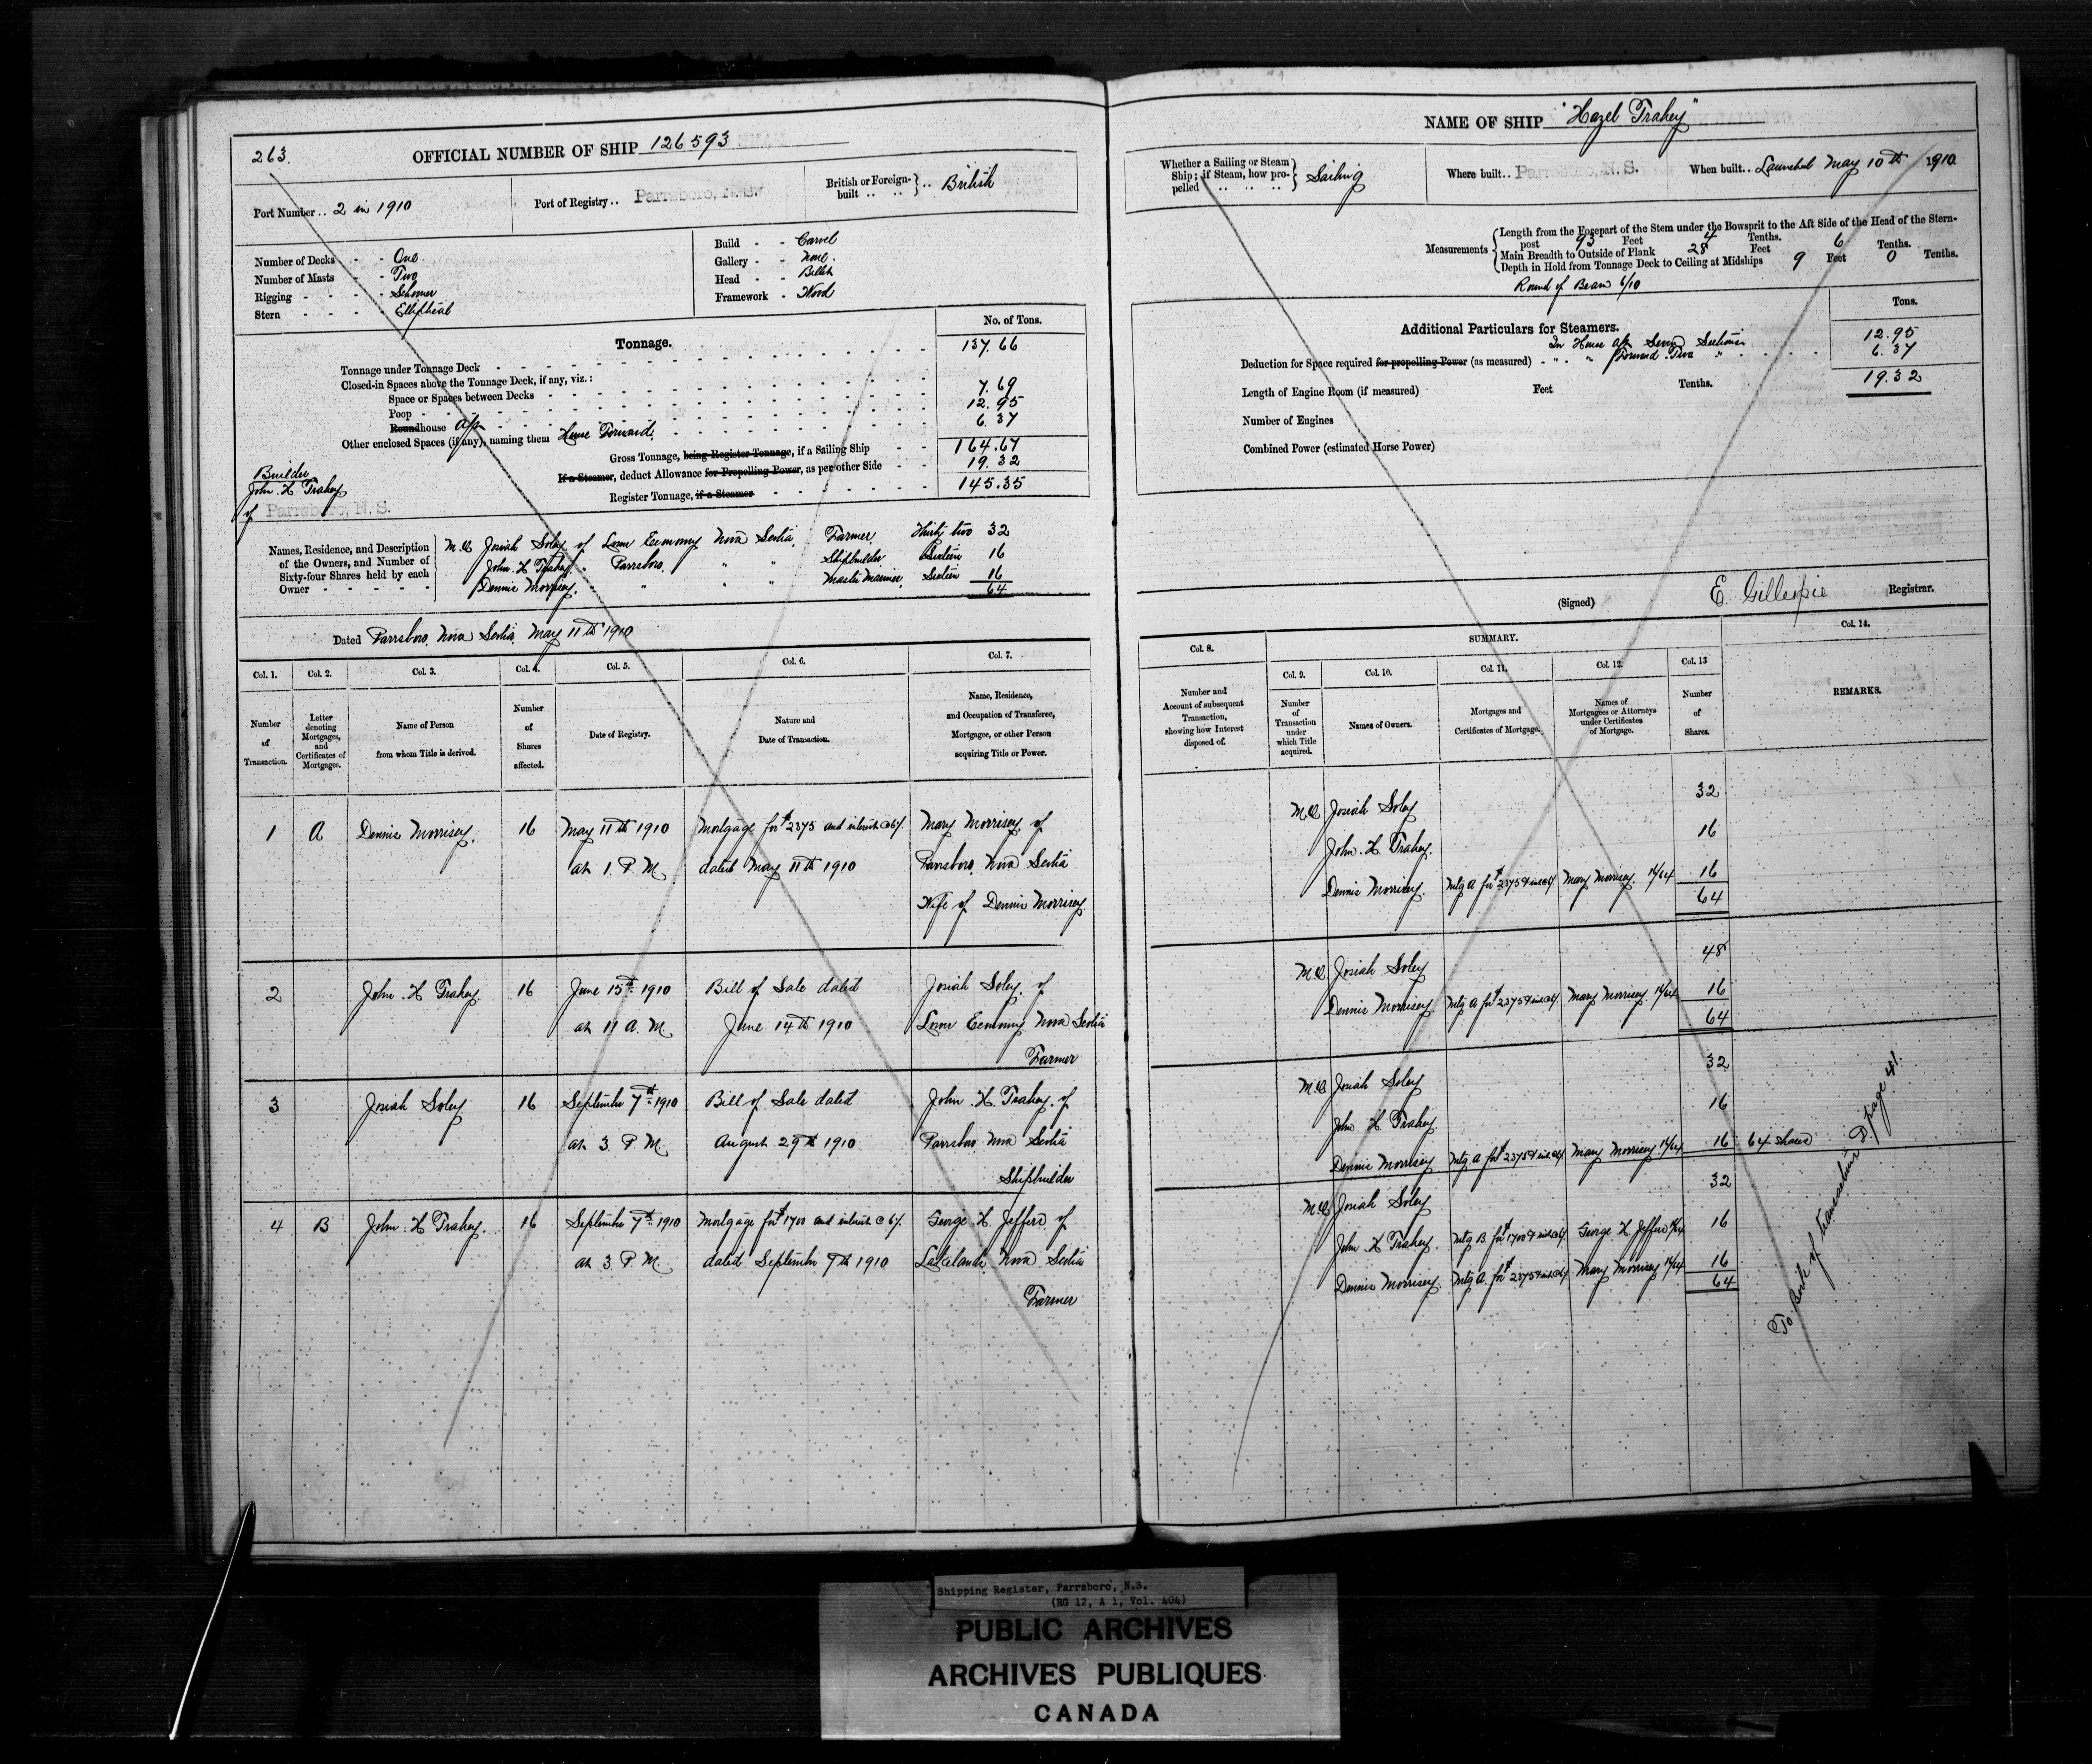 263.
OFFICIAL NUMBER OF SHIP 126593
Port Number .. 2 in 1910
Port of Registry .. Parrsboro, N.S.
British or Foreign-built .. .. British
Number of Decks - - One
Number of Masts - - Two
Rigging - - - - Schooner
Stern - - - - Elliptical
Build - - Carvel
Gallery - - None.
Head - - Billet
Framework - Wood
Tonnage.
No. of Tons.
Tonnage under Tonnage Deck 137.66
Closed-in Spaces above the Tonnage Deck, if any, viz.:
Space or Spaces between Decks
Poop 7.69
Roundhouse Aft 12.95
Other enclosed Spaces (if any), naming them House Forward. 6.37
Gross Tonnage, being Register Tonnage, if a Sailing Ship 164.67
If a Steamer, deduct Allowance for Propelling Power, as per other Side 19.32
Register Tonnage, if a Steamer 145.35
Builder
John. H Trahey
of Parrsboro, N.S.
Names, Residence, and Description
of the Owners, and Number of
Sixty-four Shares held by each
Owner - - - - -
M.O. Josiah Soley of Lower Economy Nova Scotia, Farmer, Thirty two 32
John. H Trahey. " Parrsboro, " " Shipbuilder Sixteen 16
Dennis Morrisey. " " " " Master Mariner, Sixteen 16
64
Dated Parrsboro, Nova Scotia, May 11th 1910
Col. 1. Col. 2. Col. 3. Col. 4. Col. 5. Col. 6. Col. 7.
Number of Transaction.
Letter denoting Mortgages, and Certificates of Mortgages.
Name of Person from whom Title is derived.
Number of Shares affected.
Date of Registry.
Nature and Date of Transaction.
Name, Residence, and Occupation of Transferee, Mortgagee, or other Person acquiring Title or Power.
1 A Dennis Morrisey. 16 May 11th 1910 Mortgage for $2375 and interest @ 6%. Mary Morrisey, of
at 1. P.M. dated May 11th 1910 Parrsboro, Nova Scotia
Wife of Dennis Morrisey.
2 John. H Trahey. 16 June 15th 1910 Bill of Sale dated Josiah Soley. of
at 11 A.M. June 14th 1910 Lower Economy, Nova Scotia
Farmer
3 Josiah Soley 16 September 7th 1910 Bill of Sale dated John. H. Trahey. of
at 3 P.M. August 29th 1910 Parrsboro Nova Scotia
Shipbuilder
4 B John. H Trahey. 16 September 7th 1910 Mortgage for $1700 and interest @ 6%. George. H. Jeffers of
at 3 P.M. dated September 7th 1910 Lakelands, Nova Scotia
Farmer
NAME OF SHIP "Hazel Trahey"
Whether a Sailing or Steam
Ship; if Steam, how pro-
pelled .. .. .. Sailing
Where built .. Parrsboro, N.S.
When built .. Launched May 10th 1910
Measurements
Length from the Forepart of the Stem under the Bowsprit to the Aft Side of the Head of the Stern-
post 93 Feet 4 Tenths.
Main Breadth to Outside of Plank 28 Feet 6 Tenths.
Depth in Hold from Tonnage Deck to Ceiling at Midships 9 Feet 0 Tenths.
Round of Beam 6/10
Tons.
Additional Particulars for Steamers.
In House aft 12.95
Deduction for Space required for propelling Power (as measured) - " - " Forward. 6.37
19.32
Length of Engine Room (if measured) Feet Tenths.
Number of Engines
Combined Power (estimated Horse Power)
(Signed) E. Gillespie Registrar.
SUMMARY.
Col. 8. Col. 9. Col. 10. Col. 11. Col. 12. Col. 13 Col. 14.
Number and Account of subsequent Transaction, showing how Interest disposed of.
Number of Transaction under which Title acquired.
Names of Owners.
Mortgages and Certificates of Mortgage.
Names of Mortgagees or Attorneys under Certificates of Mortgage.
Number of Shares.
REMARKS.
M.O. Josiah Soley 32
John. H. Trahey. 16
Dennis Morrisey. Mtg A for $2375 & int @ 6% Mary Morrisey. 16/64 16
64
M.O. Josiah Soley 48
Dennis Morrisey Mtg A for $2375 & int @ 6% Mary Morrisey. 16/64 16
64
M.O. Josiah Soley 32
John H Trahey 16
Dennis Morrisey Mtg A for $2375 & int @ 6% Mary Morrisey 16/64 16 64 shares
M.O. Josiah Soley 32
John. H Trahey. Mtg B for $1700 & int @ 6% George H Jeffers 16/64 16
Dennis Morrisey. Mtg A. for $2375 & int @ 6% Mary Morrisey 16/64 16
64
To Book of transactions D. page 41.
Shipping Register, Parrsboro, N.S.
(RG 12, A 1, Vol. 404)
PUBLIC ARCHIVES
ARCHIVES PUBLIQUES
CANADA